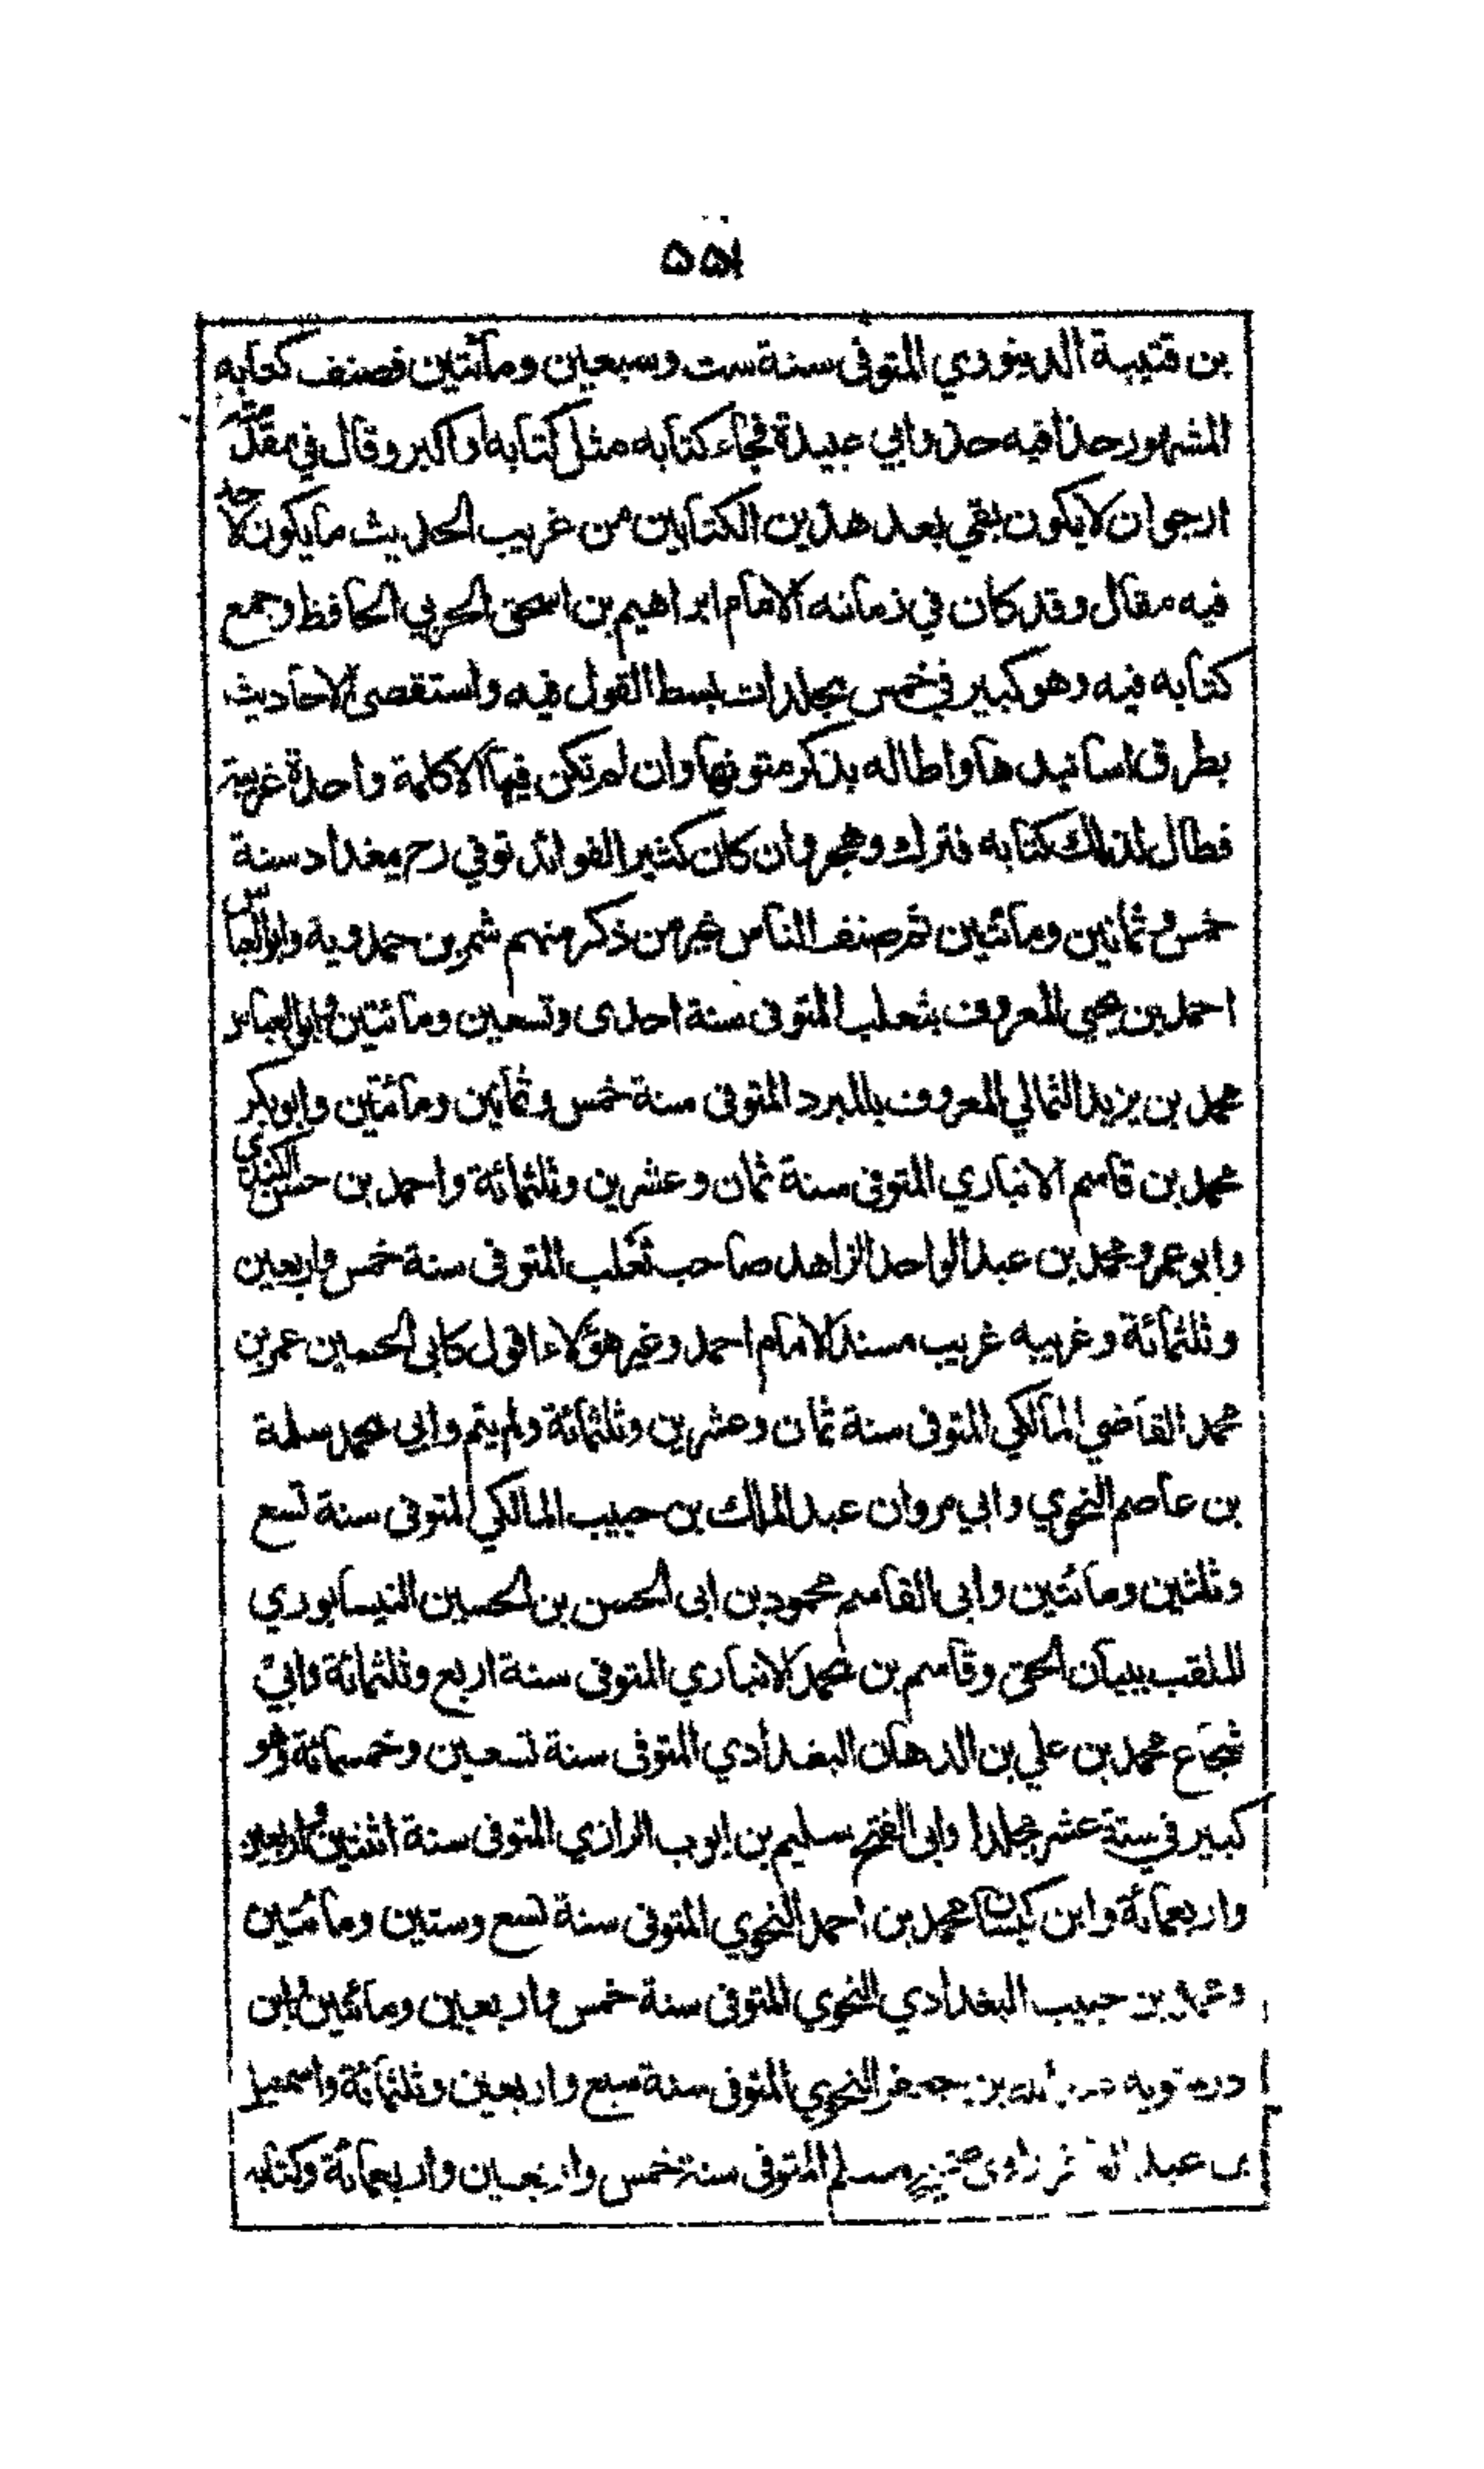 ۵۵۱
بن قتيبة الدينوري المتوفى سنة ست وسبعين ومائتين فصنف كتابه
المشهور حذا فيه حذو ابي عبيدة فجاء كتابه مثل كتابه او اكبر وقال في مقدمته
ارجو ان لا يكون بقي بعد هذين الكتابين من غريب الحديث ما يكون لاحد
فيه مقال وقد كان في زمانه الامام ابراهيم بن اسحق الحربي الحافظ وجمع
كتابه فيه وهو كبير في خمس مجلدات بسط القول فيه واستقصى الاحاديث
بطرق اسانيدها واطاله بذكر متونها وان لم تكن فيها الا كلمة واحدة غريبة
فطال لذلك كتابه فترك وهجر وان كان كثير الفوائد توفي رح ببغداد سنة
خمس وثمانين ومائتين ثم صنف الناس غير من ذكر منهم شمر بن حمدوية وابو العباس
احمد بن يحيى المعروف بثعلب المتوفى سنة احدى وتسعين ومائتين وابو العباس
محمد بن يزيد الثمالي المعروف بالمبرد المتوفى سنة خمس وثمانين ومائتين وابو بكر
محمد بن قاسم الانباري المتوفى سنة ثمان وعشرين وثلثمائة واحمد بن حسن الكندي
وابو عمرو محمد بن عبد الواحد الزاهد صاحب ثعلب المتوفى سنة خمس واربعين
وثلثمائة وغريبه غريب مسند الامام احمد وغير هؤلاء اقول كابى الحسين عمر بن
محمد القاضي المالكي المتوفى سنة ثمان وعشرين وثلثمائة ولم يتم وابي محمد سلمة
بن عاصم النحوي وابي مروان عبد الملك بن حبيب المالكي المتوفى سنة تسع
وثلثين ومائتين وابى القاسم محمود بن ابى الحسن بن الحسين النيسابوري
الملقب ببيان الحق وقاسم بن محمد الانباري المتوفى سنة اربع وثلثمائة وابي
شجاع محمد بن علي بن الدهان البغدادي المتوفى سنة تسعين وخمسمائة وهو
كبير في ستة عشر مجلدا وابى الفتح سليم بن ايوب الرازي المتوفى سنة اثنتين واربعين
واربعمائة وابن كيسان محمد بن احمد النحوي المتوفى سنة تسع وستين ومائتين
ومحمد بن حبيب البغدادي النحوي المتوفى سنة خمس واربعين ومائتين وابن
درستويه عبد الله بن جعفر النحوي المتوفى سنة سبع واربعين وثلثمائة واسمعيل
بن عبد الغافر راوى صحيح مسلم المتوفى سنة خمس واربعين واربعمائة وكتابه